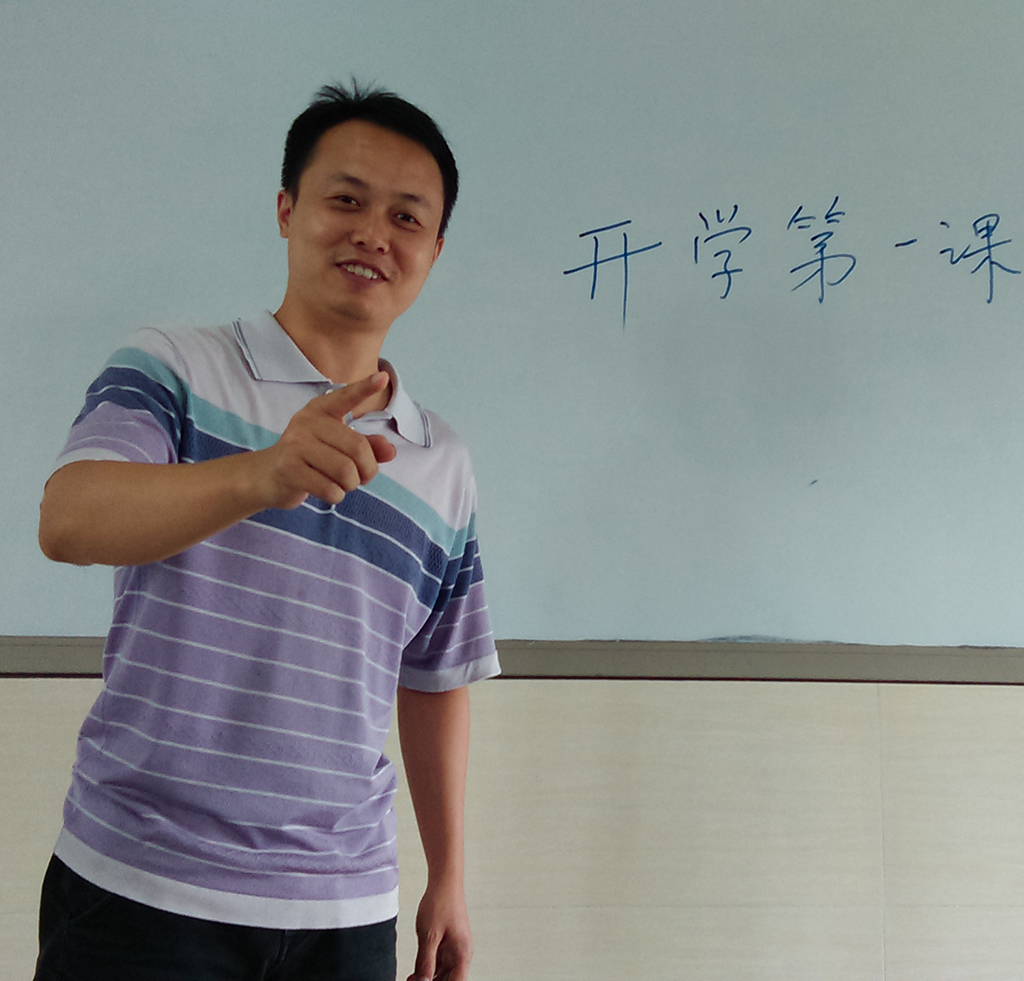 开学第一课